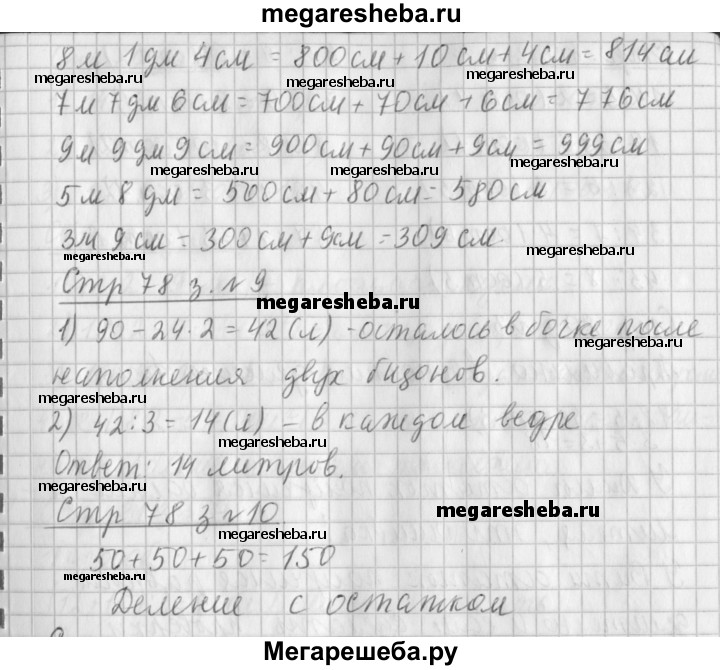 megaresheba.ru
8м 1дм 4см = 800см + 10см + 4см = 814см
megaresheba.ru megaresheba.ru megaresheba.ru
7м 7дм 6см = 700см + 70см + 6см = 776см
9м 9дм 9см = 900см + 90см + 9см = 999см
megaresheba.ru megaresheba.ru
5м 8дм = 500см + 80см = 580см
3м 9см = 300см + 9см = 309см.
megaresheba.ru megaresheba.ru
Стр 78 з. №9
megaresheba.ru
1) 90 - 24·2 = 42(л) - осталось в бочке после
megaresheba.ru
наполнения двух бидонов.
megaresheba.ru
2) 42:3 = 14(л) - в каждом ведре
megaresheba.ru
Ответ: 14 литров.
megaresheba.ru
Стр 78 з №10
megaresheba.ru megaresheba.ru
50 + 50 + 50 = 150
megaresheba.ru
Деление с остатком
Мегарешеба.ру